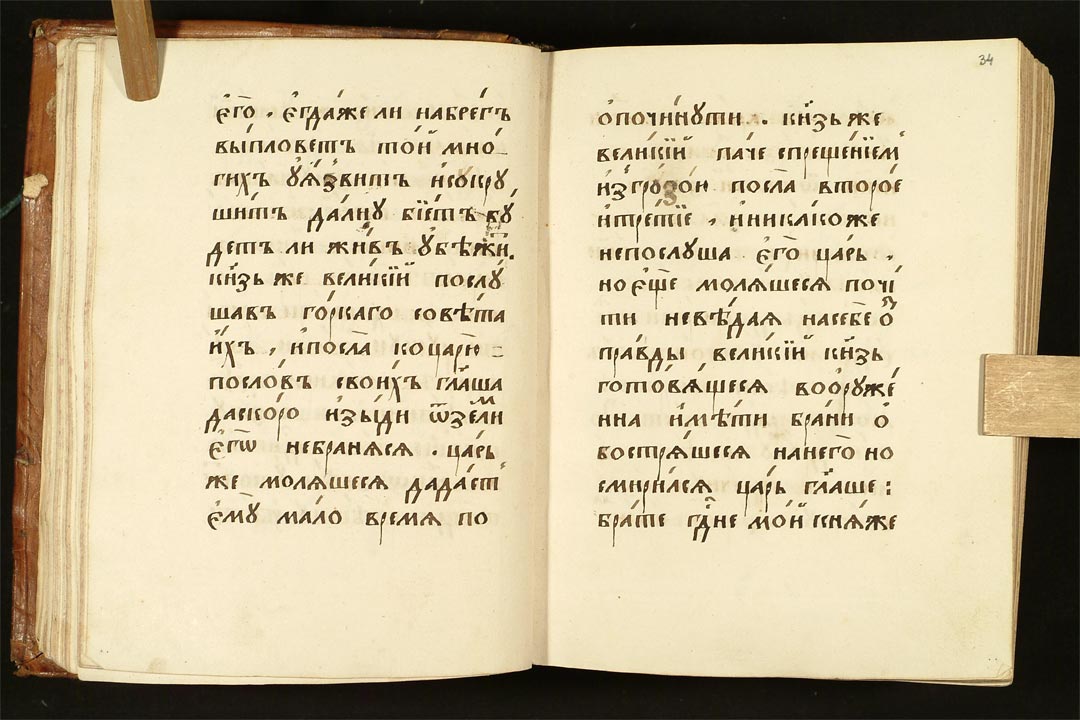 є҆го҃ . є҆гда́же ли набре́гъ
вы́пловетъ то́й мно_
гихъ ᲂу҆ꙗ҆звитъ и҆сокру
ши́тъ да́лнꙋ бїе́тъ бꙋ́
детъ ли жи́въ ᲂу҆бѣжи́.
кн҃зь же вели́кїй послꙋ́
шавъ го́ркаго совѣ́та
и҆́хъ , и҆посла̀ ко царю̀
посло́въ свои́хъ гл҃ѧ́ша
даско́ро и҆зы́ди ѿземли̑
є҆гѡ̀ небранѧ́сѧ . ца́рь
же молѧ́шесѧ дада́ст
є҆мꙋ̀ ма́ло время по
34
ѻ҆почи́нꙋти . кн҃зь же
вели́кїй па́че спреще́нїем
и҆згро́зою посла̀ второ́е
и҆тре́тїе , и҆ника́коже
непослꙋ́ша є҆го̀ ца́рь .
но є҆ще молѧ́шесѧ почи́
ти невѣ́даѧ насебе ѿ
пра́вды вели́кїй кн҃зь
гото́вѧшесѧ воо҆рꙋже́
нна и҆мѣ́ти бра́ни ѻ҆
востря́шесѧ нанего̀ но
смири́лсѧ ца́рь гл҃аше :
бра́те гд҃не мо́й кнѧ́же